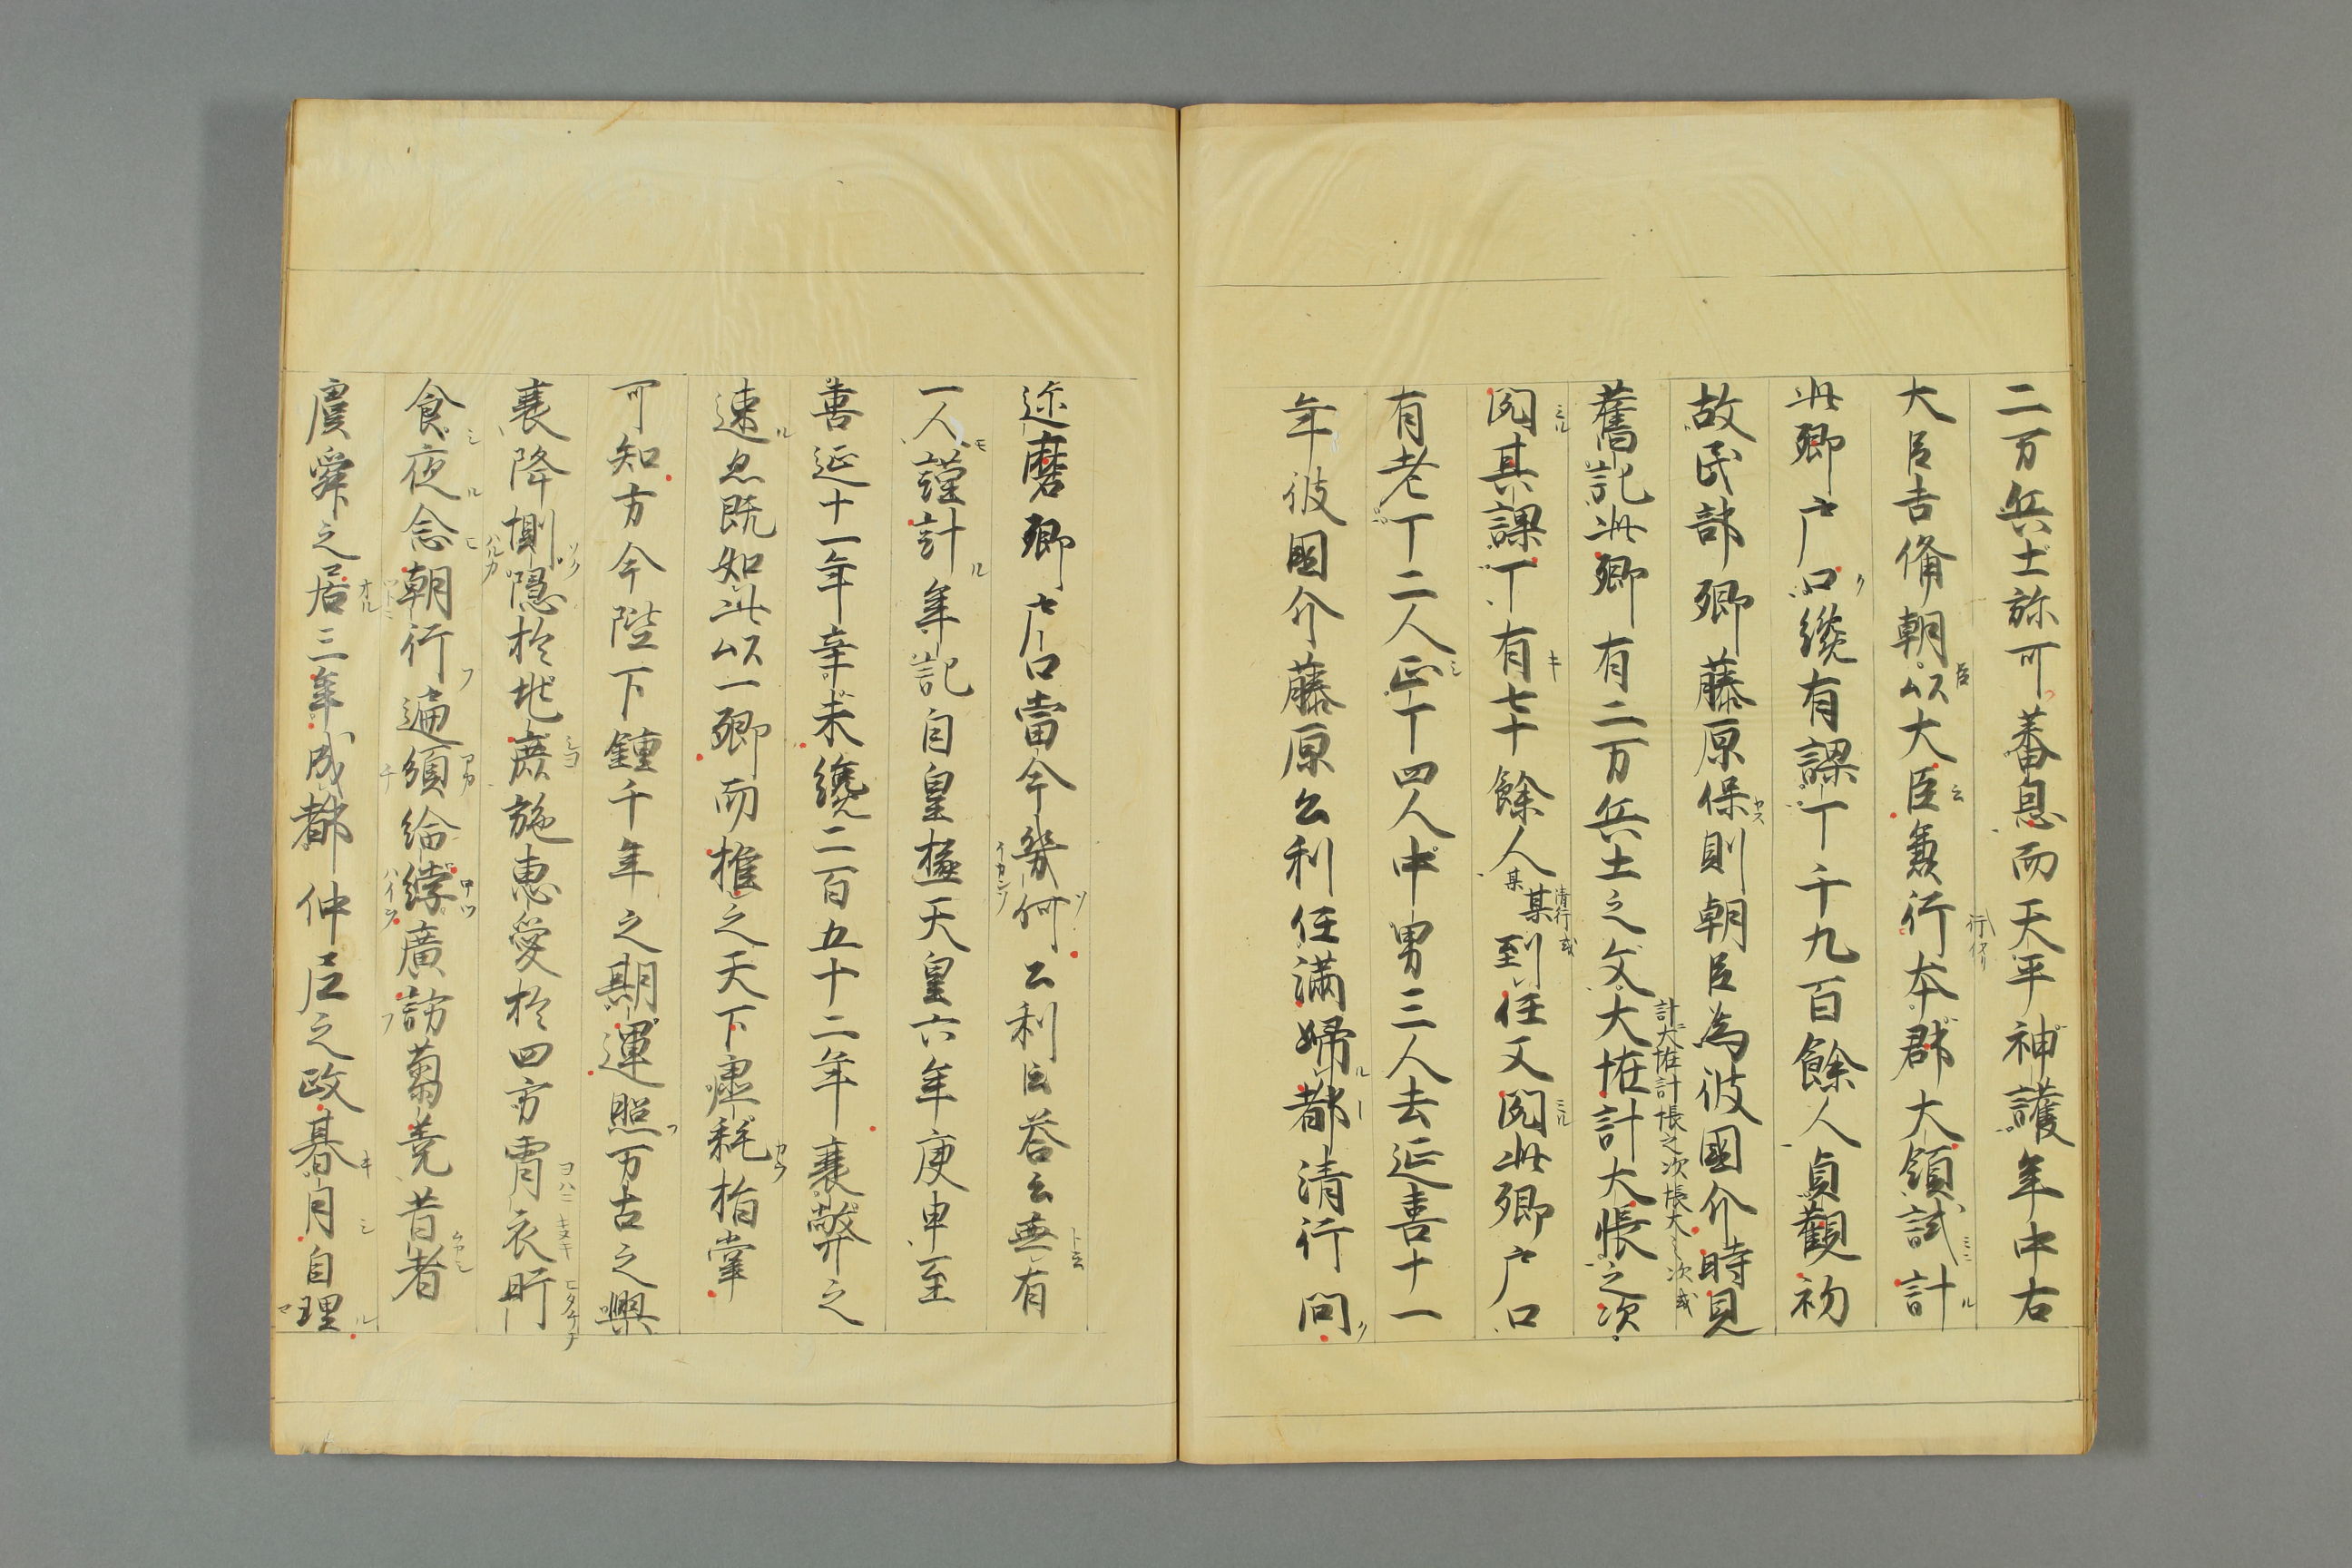 二万兵士弥可蕃息而天平神護年中右
大臣吉備朝以大臣兼行本郡大領試計
此郷戸口纔有課丁千九百餘人貞觀初
故民部卿藤原保則朝臣為彼國介時見
舊記此郷有二万兵士之文大帳計大帳之次
閲其課丁有七十餘人某某到任又閲此郷戸口
有老丁二人正丁四人中男三人去延喜十一
年彼國介藤原公利任満婦都清行問
迩磨郷戸口當今幾何公利公答云無有
一人謹計年記自皇極天皇六年庚申至
善延十一年辛未纔二百五十二年衰弊之
速忽既如此以一郷而推之天下虚耗指掌
可知方今陛下鍾千年之期運照万古之興
衰降惻隠於地庶施恵愛於四方霄衣旰
食夜念朝行遍須綸綍廣訪蒭蕘昔者
虞舜之居三年成都仲尼之政朞月自理